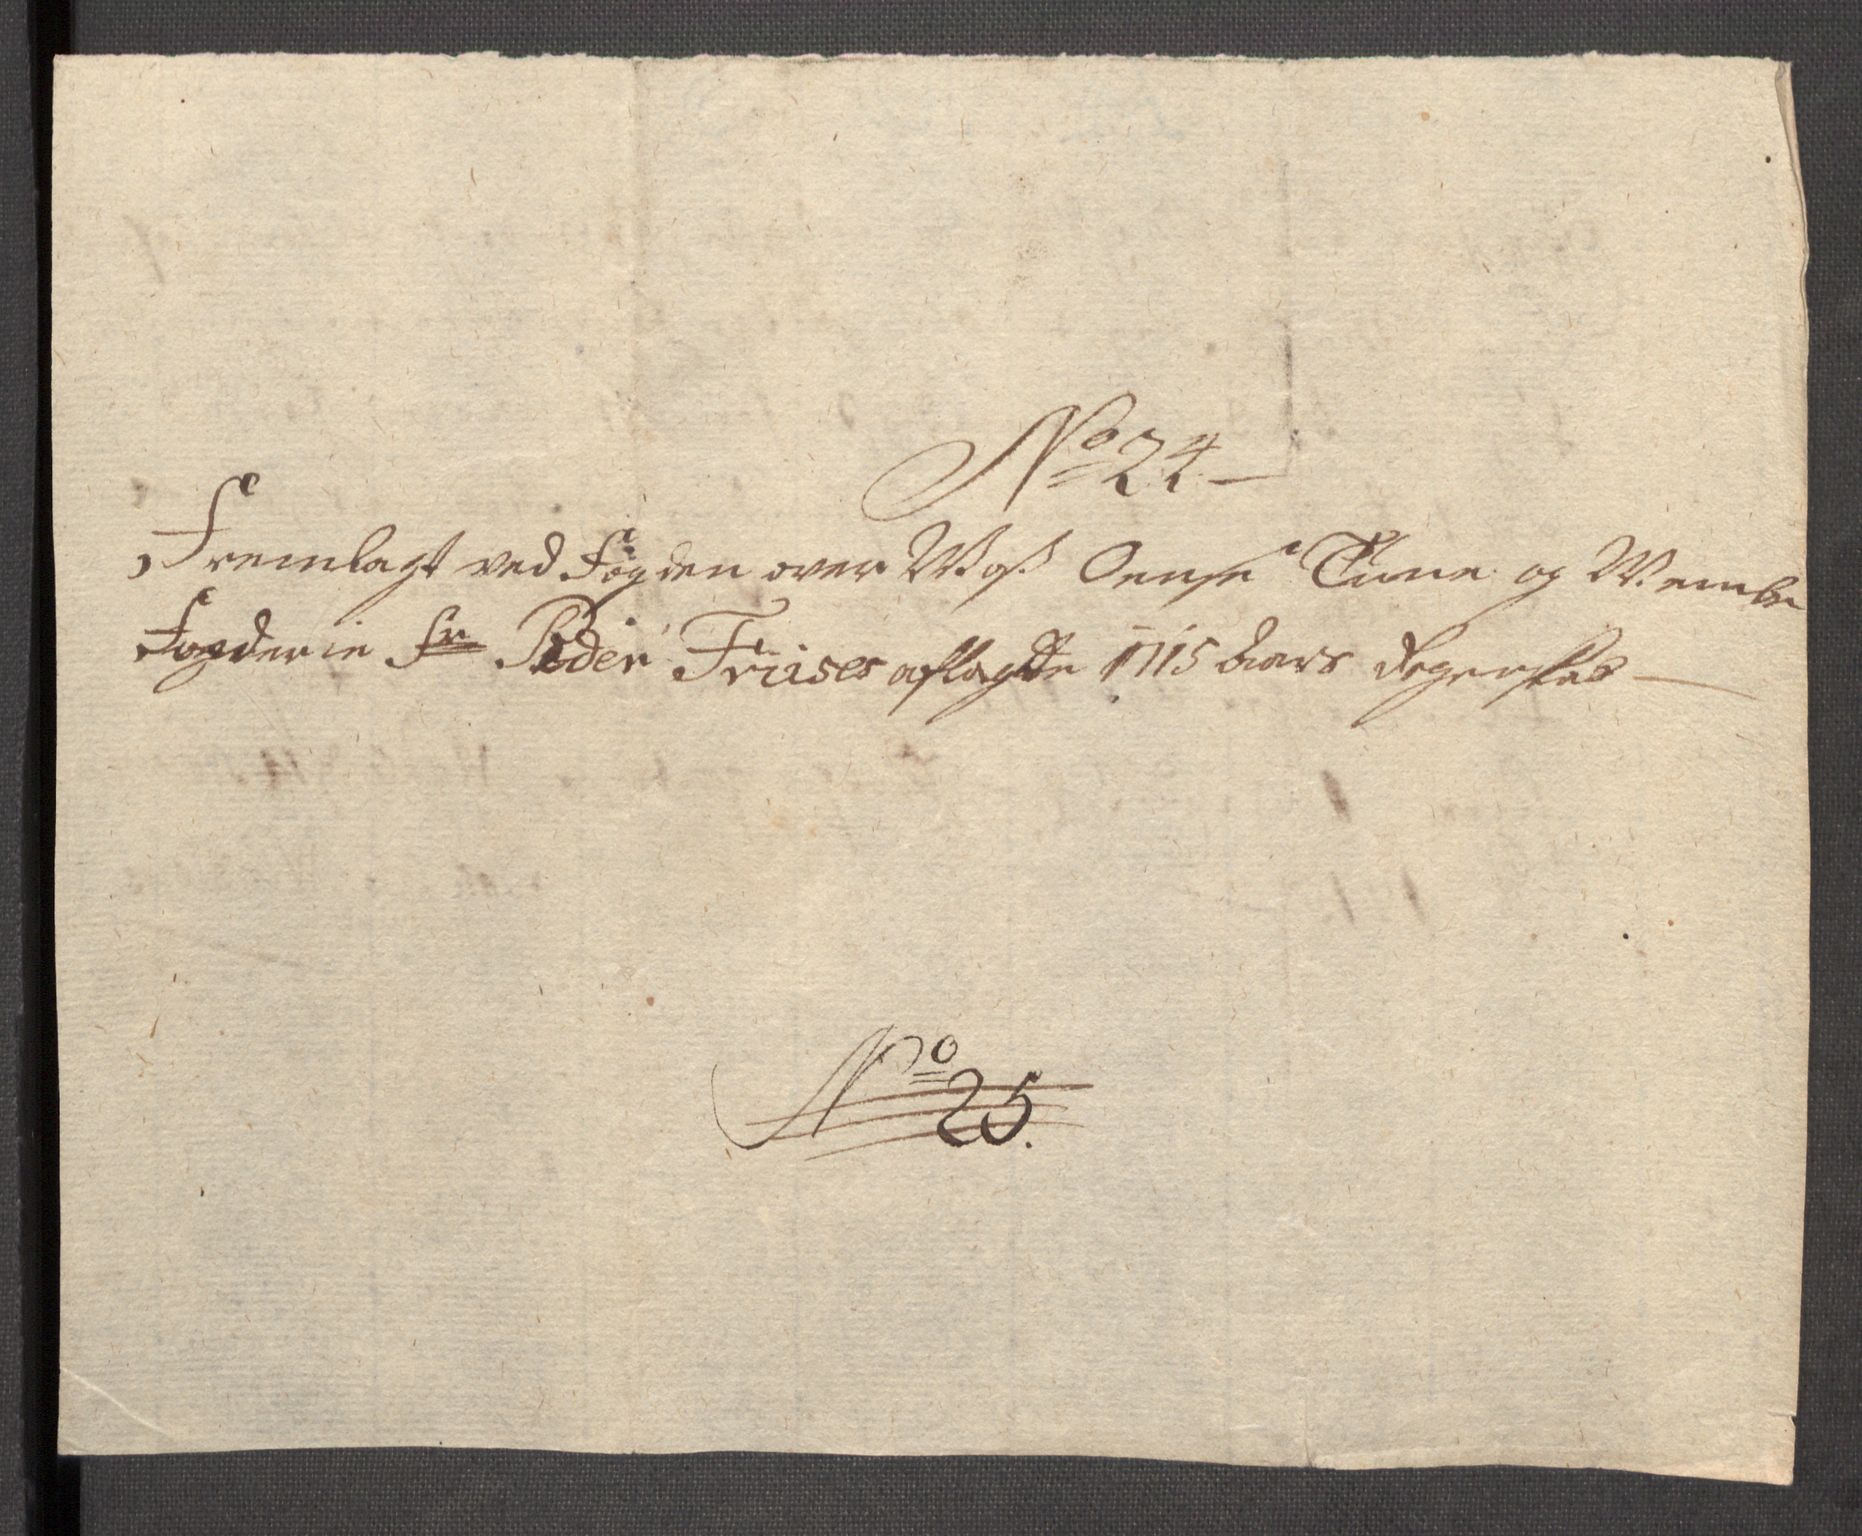 No 24
Fremlagt ved Fogden over Moß Oense Tune og Wembe
Fogderie Sr Peder Friises aflagde 1715 Aars Regenskab
No 25.